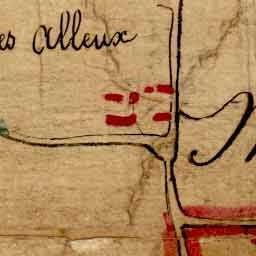 es Alleux